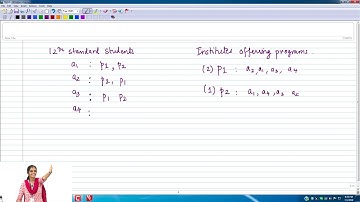 12th standard students
a1 : p1, p2
a2 : p2, p1
a3 : p1 p2
a4 :
Institutes offering programs
(2) p1 : a2, a1, a3, a4
(1) p2 : a1, a4, a3 a2